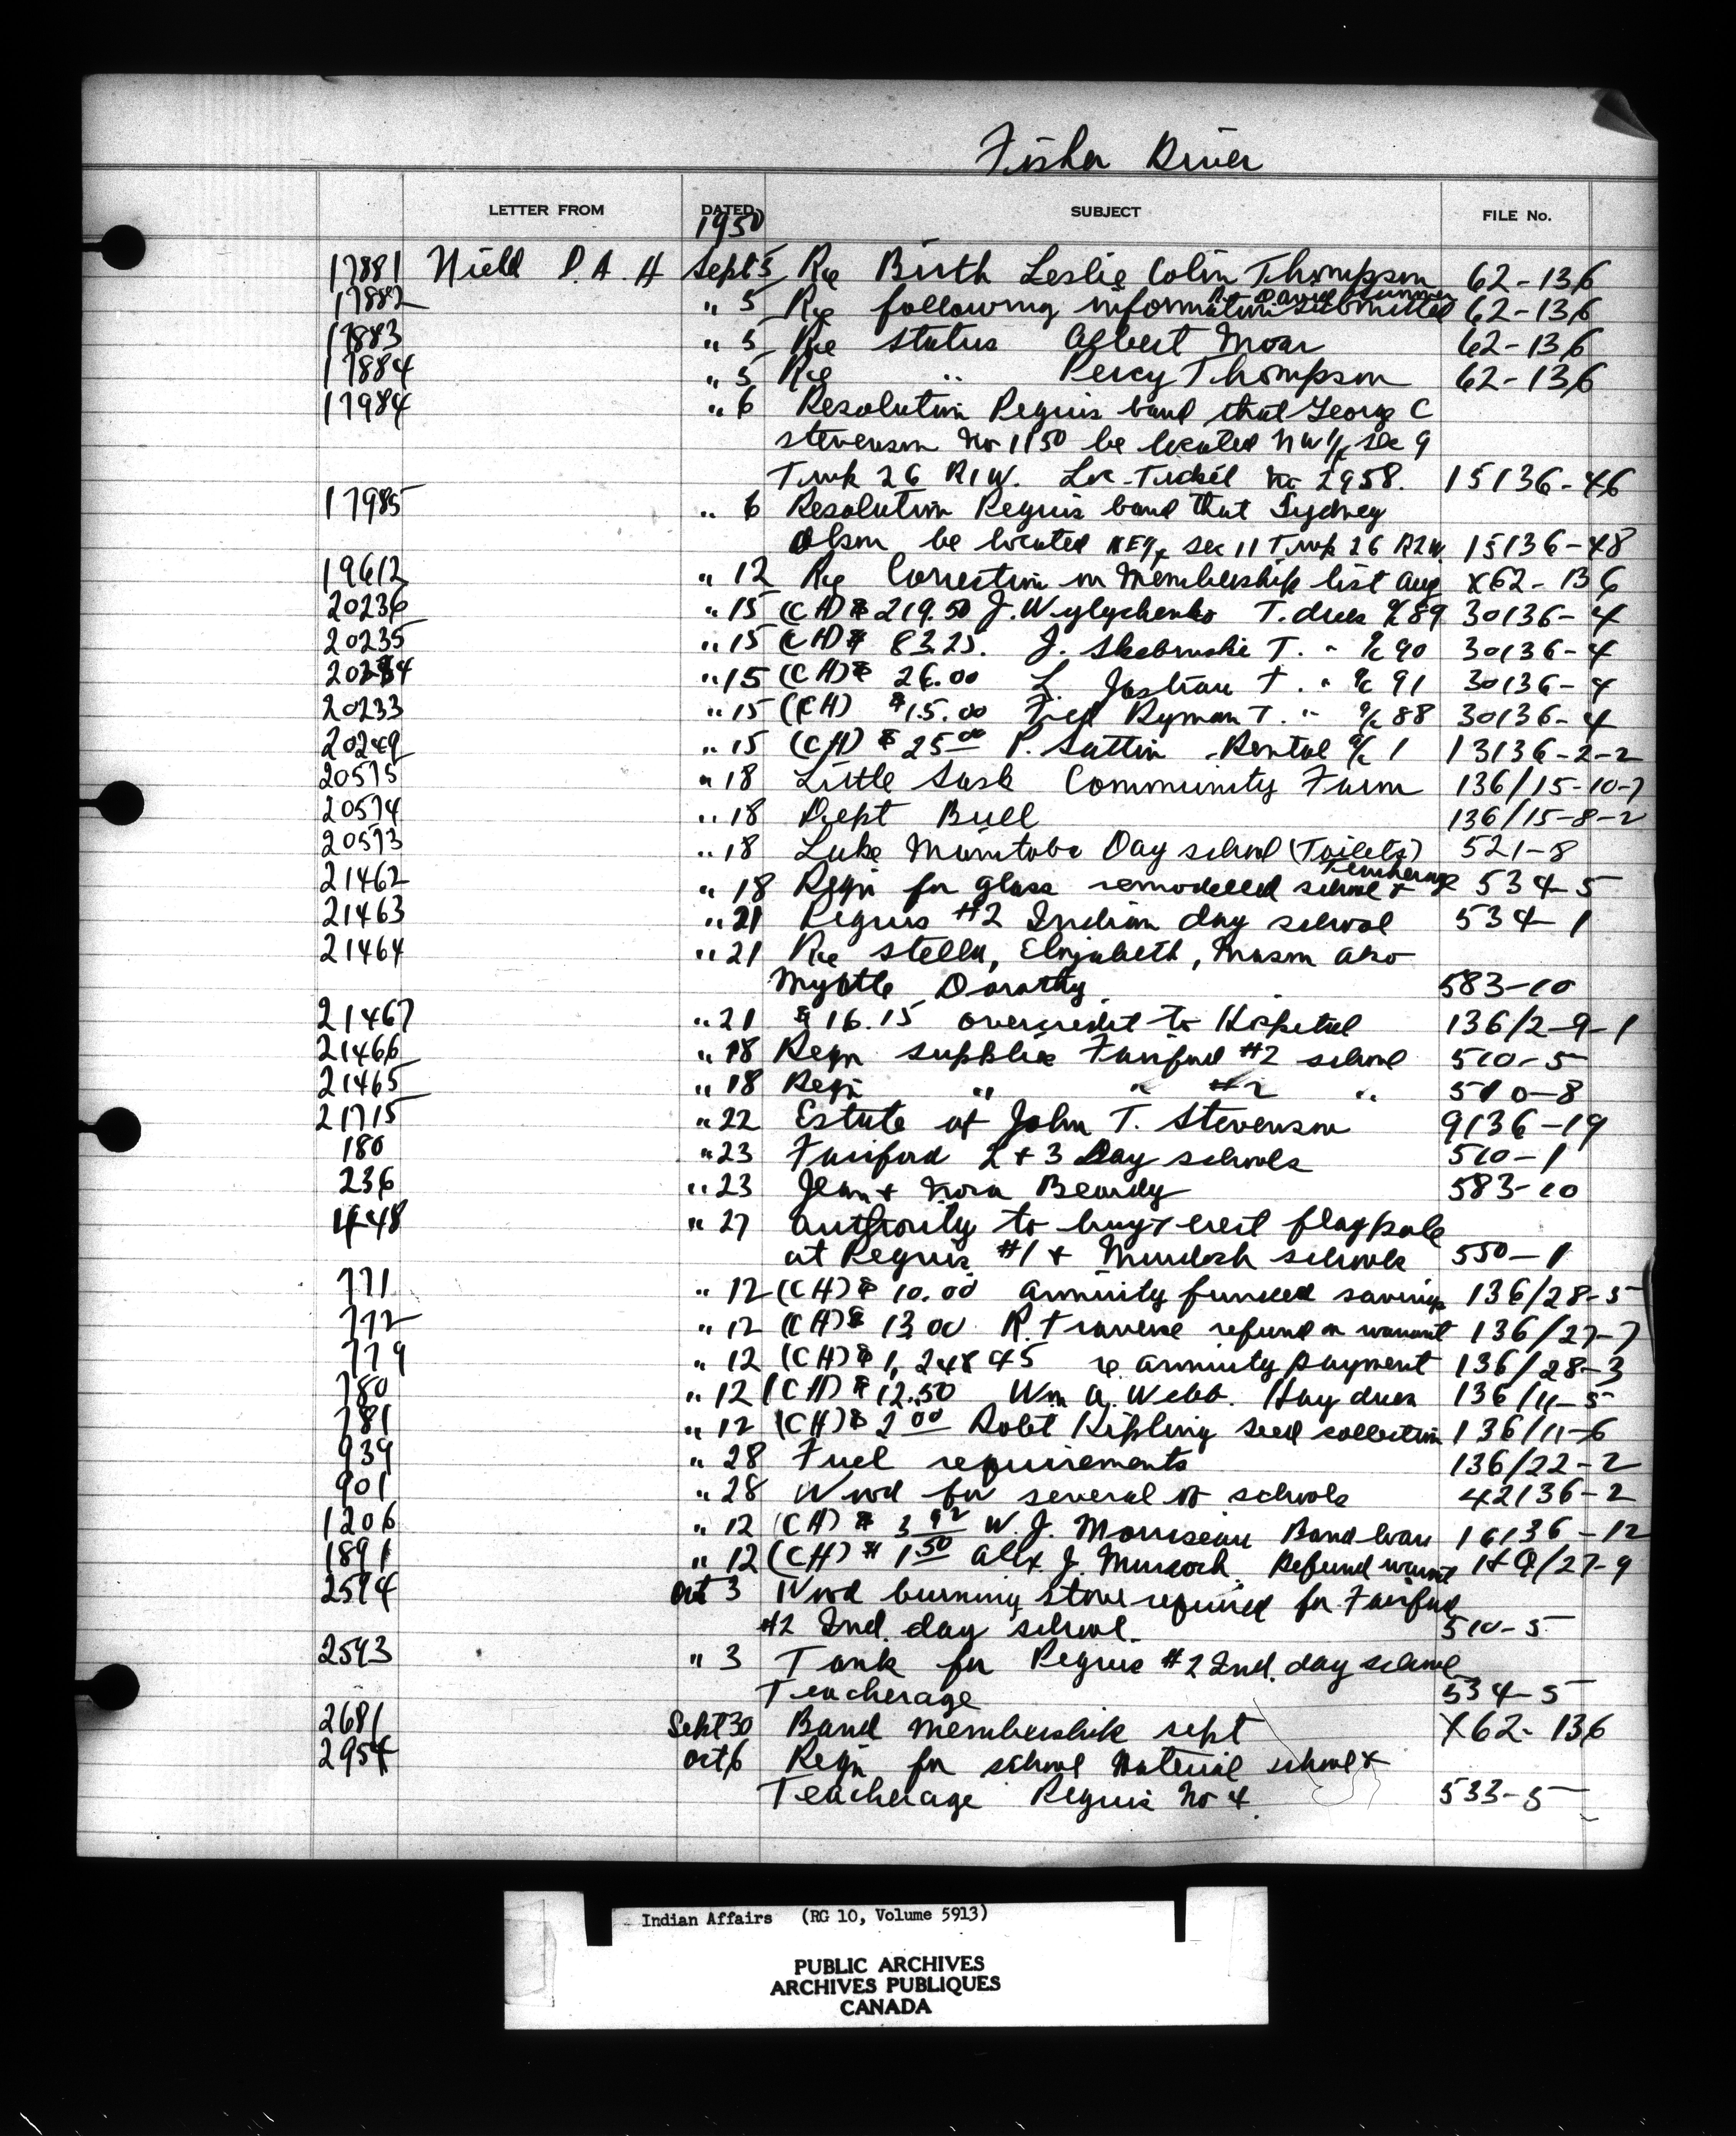 Fisher River
LETTER FROM DATED SUBJECT FILE No.
1950
17881 Nield P.A.H Sept 5 Re Birth Leslie Colin Thompson 62-136
17882 " 5 Re following information submitted 62-136
17883 " 5 Re status Albert Moar 62-136
17884 " 5 Re " Percy Thompson 62-136
17984 " 6 Resolution Peguis band that George C
Stevenson No 1150 be located NW 1/4 sec 9
Twp 26 R1W. Loc-Ticket No 2958. 15136-46
17985 " 6 Resolution Peguis band that Sydney
Olson be located NE 1/4 sec 11 Twp 26 R2W 15136-48
19612 " 12 Re Correction in Membership list Aug X62-136
20236 " 15 (CH) $ 219.50 J. Wylychenko T. dues % 89 30136-4
20235 " 15 (CH) $ 83.25. J. T. " % 90 30136-4
20234 " 15 (CH) $ 26.00 L. T. " % 91 30136-4
20233 " 15 (CH) $15.00 Fred Ryman T. " % 88 30136-4
20249 " 15 (CH) $ 25.00 P. Rental % 1 13136-2-2
20575 " 18 Little Sask Community Farm 136/15-10-7
20574 " 18 Dept Bull 136/15-8-2
20573 " 18 Lake Manitoba Day school (Toilets) 521-8
Teacherage
21462 " 18 Reqn for glass remodelled school & 534-5
21463 " 21 Peguis #2 Indian day school 534-1
21464 " 21 Re Stella, Elizabeth, Mason also
Myrtle Dorothy 583-10
21467 " 21 $16.15 overcredit to Hospital 136/2-9-1
21466 " 18 Reqn supplies Fairford #2 school 510-5
21465 " 18 Reqn " " #2 " 510-8
21715 " 22 Estate of John T. Stevenson 9136-19
180 " 23 Fairford 2 + 3 Day schools 510-1
236 " 23 Jean + Nora Beardy 583-10
448 " 27 Authority to buy & erect flagpole
at Peguis #1 & Murdoch schools 550-1
771 " 12 (CH) $ 10.00 annuity funded savings 136/28-5
772 " 12 (CH) $ 13.00 R. Traverse refund on warrant 136/27-7
779 " 12 (CH) $ 1,248 45 re annuity payment 136/28-3
780 " 12 (CH) $ 12.50 Wm A. Webb. Hay dues 136/11-5
781 " 12 (CH) $ 2.00 Robt Kipling seed collection 136/11-6
939 " 28 Fuel requirements 136/22-2
901 " 28 Wood for several of schools 42136-2
1206 " 12 (CH) $ 3.92 W. J. Morriseau Band loan 16136-12
1891 " 12 (CH) $ 1.50 Alex J. Murdoch. Refund warrant HQ/27-9
2574 Oct 3 Wood burning stove required for Fairford
#2 Ind. day school. 510-5
2593 " 3 Tank for Peguis #2 Ind. day school
Teacherage 534-5
2681 Sept 30 Band Membership sept X62-136
2954 Oct 6 Reqn for school Material school &
Teacherage Peguis No 4 533-5
Indian Affairs (RG 10, Volume 5913)
PUBLIC ARCHIVES
ARCHIVES PUBLIQUES
CANADA